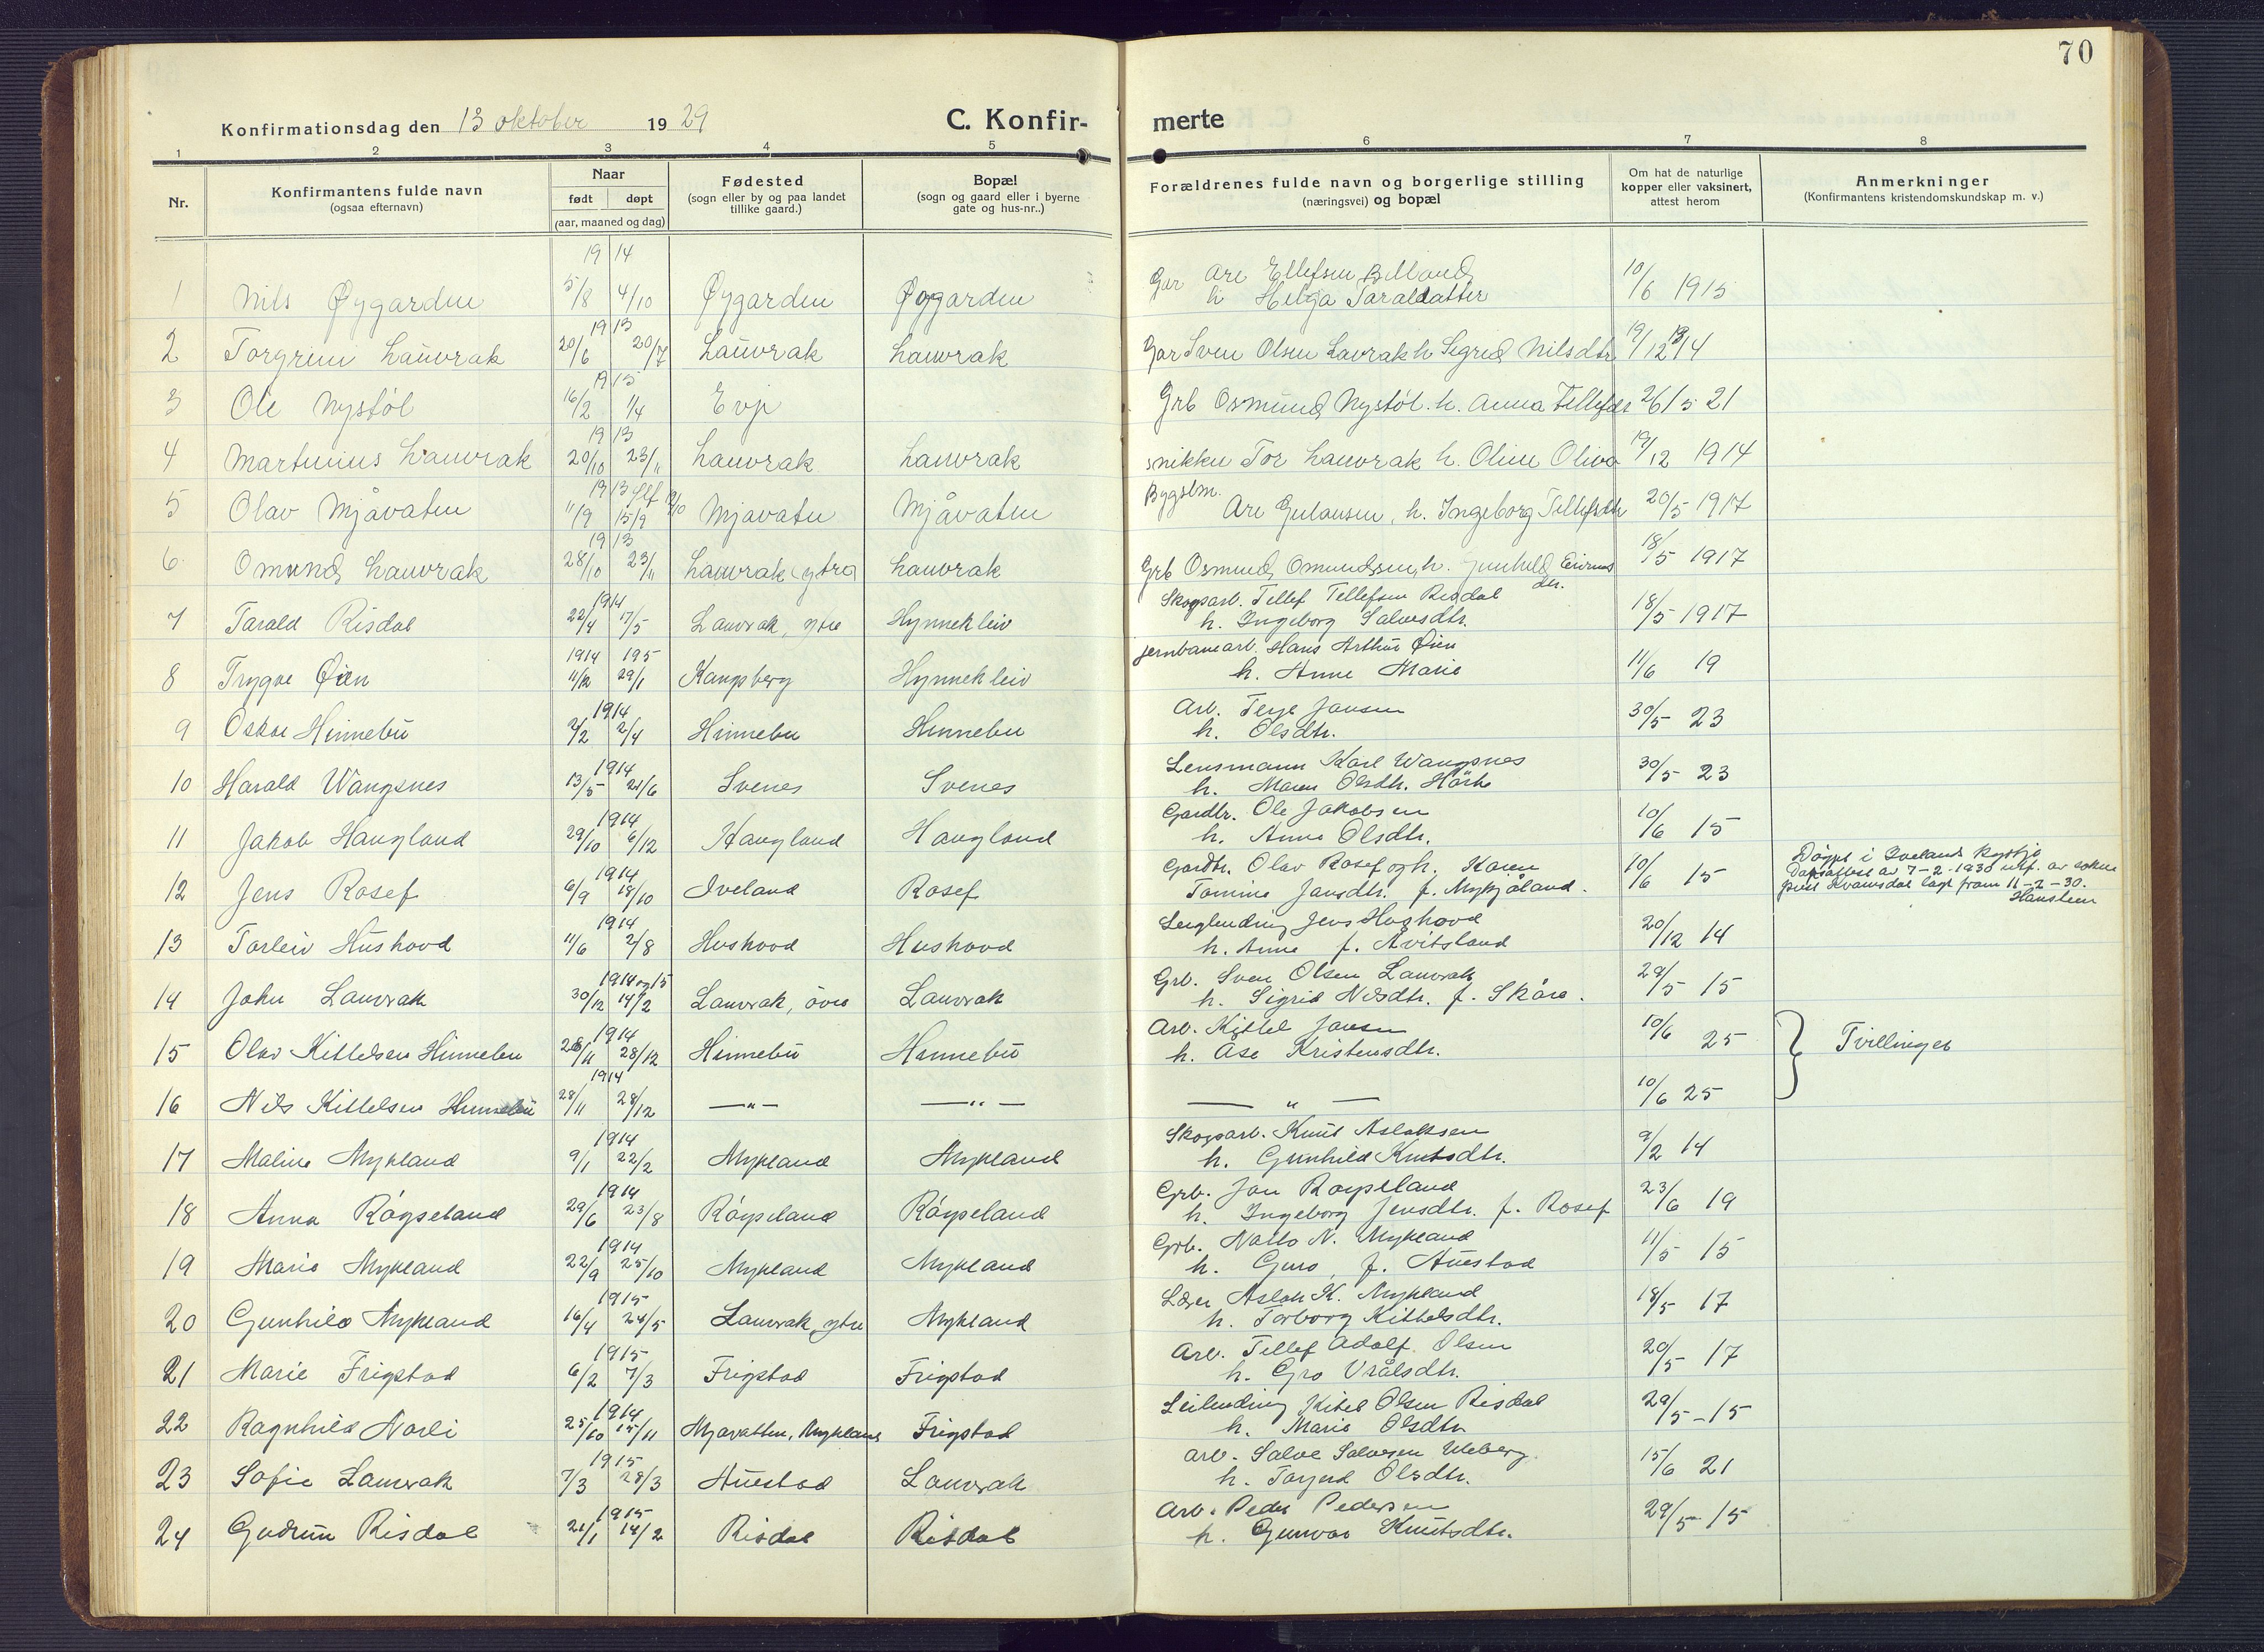 70
Konfirmationsdag den 13 oktober 1929
C. Konfir-
merte
1 2 3 4 5 6 7 8
Nr.
Konfirmantens fulde navn
(ogsaa efternavn)
Naar
født døpt
(aar, maaned og dag)
Fødested
(sogn eller by og paa landet
tillike gaard.)
Bopæl
(sogn og gaard eller i byerne
gate og hus-nr..)
Forældrenes fulde navn og borgerlige stilling
(næringsvei) og bopæl
Om hat de naturlige
kopper eller vaksinert,
attest herom
Anmerkninger
(Konfirmantens kristendomskundskap m. v.)
1914
1 Nils Øygarden 5/8 4/10 Øygarden Øygarden Gar Are Ellefsen
h Helga Taraldatter 10/6 1915
1913
2 Torgrim Lauvrak 20/6 20/7 Lauvrak Lauvrak Gar Sven Olsen Lavrak h Sigrid Nilsdtr 19/12 14
1915
3 Ole Nystøl 16/2 1/4 Evje Grb Osmund Nystøl. h. Anna Tellefsdr 26/5 21
1913
4 Martinius Lauvrak 20/10 23/11 Lauvrak Lauvrak snikker Tor Lauvrak h. Oline Oliva 19/12 1914
1913
5 Olav Mjåvaten 11/9 15/9 Mjavatn Mjåvaten Bygslm.
Are h. Ingeborg Tellefsdtr 20/5 1917
1913
6 Omund Lauvrak 28/10 23/11 Lauvrak ytre Lauvrak Grb Osmund Omundsen, h. Gunhild
dtr. 18/5 1917
1914
7 Tarald Risdal 22/4 17/5 Lauvrak, ytre Hynnekleiv Skogsarb. Tellef Tellefsen Risdal
h. Ingeborg Salvesdtr. 18/5 1917
1914 195
8 Trygve Øien 11/12 29/1 Kongsberg Hynnekleiv jernbanearb. Hans Arthur Øien
h. Anne Marie 11/6 19
1914
9 Oskar Hinnebu 2/2 2/4 Hinnebu Hinnebu Arb. Terje Jansen
h. Olsdtr. 30/5 23
1914
10 Harald Wangsnes 13/5 21/6 Svenes Svenes Lensmann Karl Wangsnes
h. Maren Olsdtr. 30/5 23
1914
11 Jakob Haugland 29/10 6/12 Haugland Haugland Gardbr. Ole Jakobsen
h. Anne Olsdtr. 10/6 15
1914
12 Jens Rosef 6/9 18/10 Iveland Rosef Gardbr. Olav Rosef og h. Karen
Tomine Jansdtr. f. Mykjåland. 10/6 15
Døypt i Iveland kyrkje
Dåpsattest av 7-2-1930 utf. av sokne
prest Kvamsdal lagt fram 11-2-30.
Hansteen
1914
13 Torleiv Hushovd 11/6 2/8 Hushovd Hushovd Leiglending Jens Hushovd
h. Anne f. Avitsland 20/12 14
1914 og 15
14 John Lauvrak 30/12 14/2 Lauvrak, øvre Lauvrak Grb. Sven Olsen Lauvrak
h. Sigrid Nilsdtr. f. Skåre. 29/5 15
1914
15 Olav Kittelsen Hinnebu 28/11 28/12 Hinnebu Hinnebu Arb. Kittel Jansen
h. Åse Kristensdtr. 10/6 25
Tvillinger
1914
16 Nils Kittelsen Hinnebu 28/11 28/12 — " — — " — — " — 10/6 25
1914
17 Maline Mykland 9/1 22/2 Mykland Mykland Skogsarb. Knut Aslaksen
h. Gunhild Knutsdtr. 9/2 14
1914
18 Anna Røyseland 29/6 23/8 Røyseland Røyseland Grb. Jon Røyseland
h. Ingeborg Jensdtr. f. Rosef 23/6 19
1914
19 Marie Mykland 22/9 25/10 Mykland Mykland Grb. N. Mykland
h. Guro, f. Auestad 11/5 15
1915
20 Gunhild Mykland 16/4 24/5 Lauvrak, ytre Mykland Lærer Aslak K. Mykland
h. Torborg Kittelsdtr. 18/5 17
1915
21 Marie Frigstad 6/2 7/3 Frigstad Frigstad Arb. Tellef Adolf Olsen
h. Gro Vrålsdtr. 20/5 17
1914
22 Ragnhild Norli 25/10 15/11 Mjavatten, Mykland Frigstad Leilending Kittel Olsen Risdal
h. Marie Olsdtr 29/5-15
1915
23 Sofie Lauvrak 7/3 28/3 Auestad Lauvrak arb. Salve Salvesen Uleberg
h. Torjerd Olsdtr. 15/6 21
1915
24 Gudrun Risdal 21/1 14/2 Risdal Risdal Arb. Peder Pedersen
h. Gunvor Knutsdtr. 29/5-15